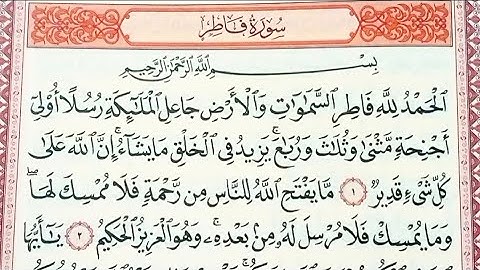 سُورَةُ فَاطِرٍ
بِسْمِ ٱللَّهِ ٱلرَّحْمَٰنِ ٱلرَّحِيمِ
ٱلْحَمْدُ لِلَّهِ فَاطِرِ ٱلسَّمَٰوَٰتِ وَٱلْأَرْضِ جَاعِلِ ٱلْمَلَٰٓئِكَةِ رُسُلًا أُو۟لِىٓ
أَجْنِحَةٍ مَّثْنَىٰ وَثُلَٰثَ وَرُبَٰعَ ۚ يَزِيدُ فِى ٱلْخَلْقِ مَا يَشَآءُ ۚ إِنَّ ٱللَّهَ عَلَىٰ
كُلِّ شَىْءٍ قَدِيرٌ ۝١ مَّا يَفْتَحِ ٱللَّهُ لِلنَّاسِ مِن رَّحْمَةٍ فَلَا مُمْسِكَ لَهَا ۖ
وَمَا يُمْسِكْ فَلَا مُرْسِلَ لَهُۥ مِنۢ بَعْدِهِۦ ۚ وَهُوَ ٱلْعَزِيزُ ٱلْحَكِيمُ ۝٢ يَٰٓأَيُّهَا